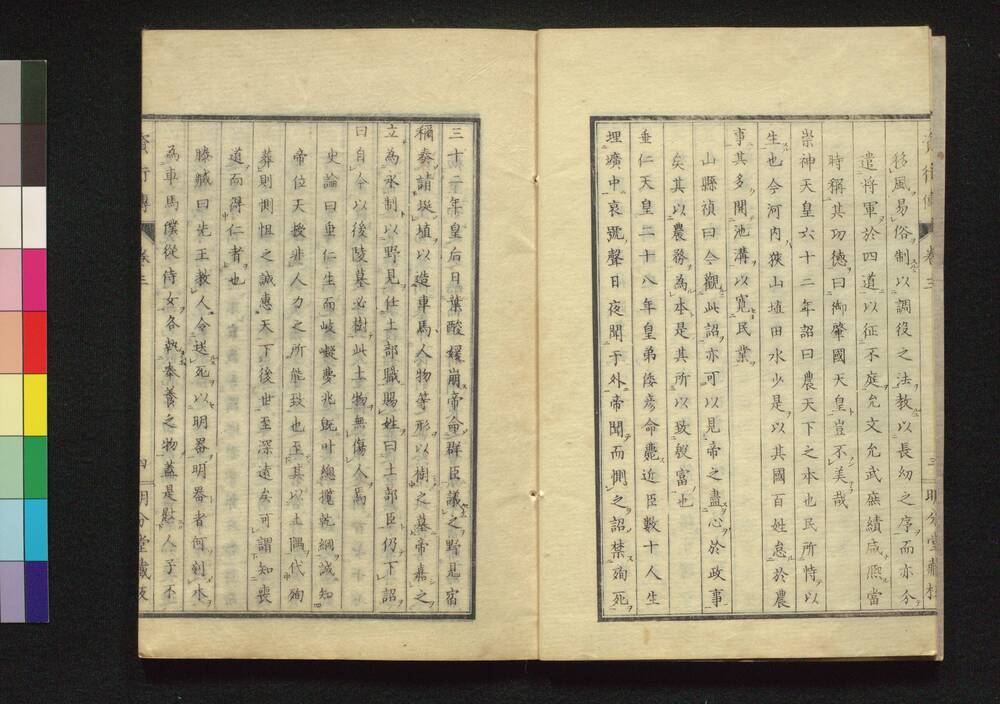 移風易俗制以調役之法教以長幼之序而亦分
遣將軍於四道以征不庭允文允武庶績咸熈當
時稱其功德曰御肇國天皇豈不美哉
崇神天皇六十二年詔曰農天下之本也民所恃以
生也今河内狹山埴田水少是以其國百姓怠於農
事其多開池溝以寬民業
山縣禎曰今觀此詔亦可以見帝之盡心於政事
矣其以農務為本是其所以致殷富也
垂仁天皇二十八年皇弟倭彦命薨近臣數十人生
埋壙中哀號聲日夜聞于外帝聞而惻之詔禁殉死
三十二年皇后日葉酸媛崩帝命群臣議之野見宿
稱奏請埏埴以造車馬人物等形以樹之墓帝嘉之
立為永制以野見仕土部職賜姓曰土部臣仍下詔
曰自今以後陵墓必樹此土物無傷人焉
史論曰垂仁生而岐嶷夢兆既叶總攬乾綱誠知
帝位天授非人力之所能致也至其以土偶代殉
葬則惻怛之誠惠天下後世至深遠矣可謂知喪
道而得仁者也
滕臧曰先王教人令送死以明器明器者何刻木
為車馬僕從侍女各執奉養之物蓋是慰人子不
卷三
三
四
明分堂藏板